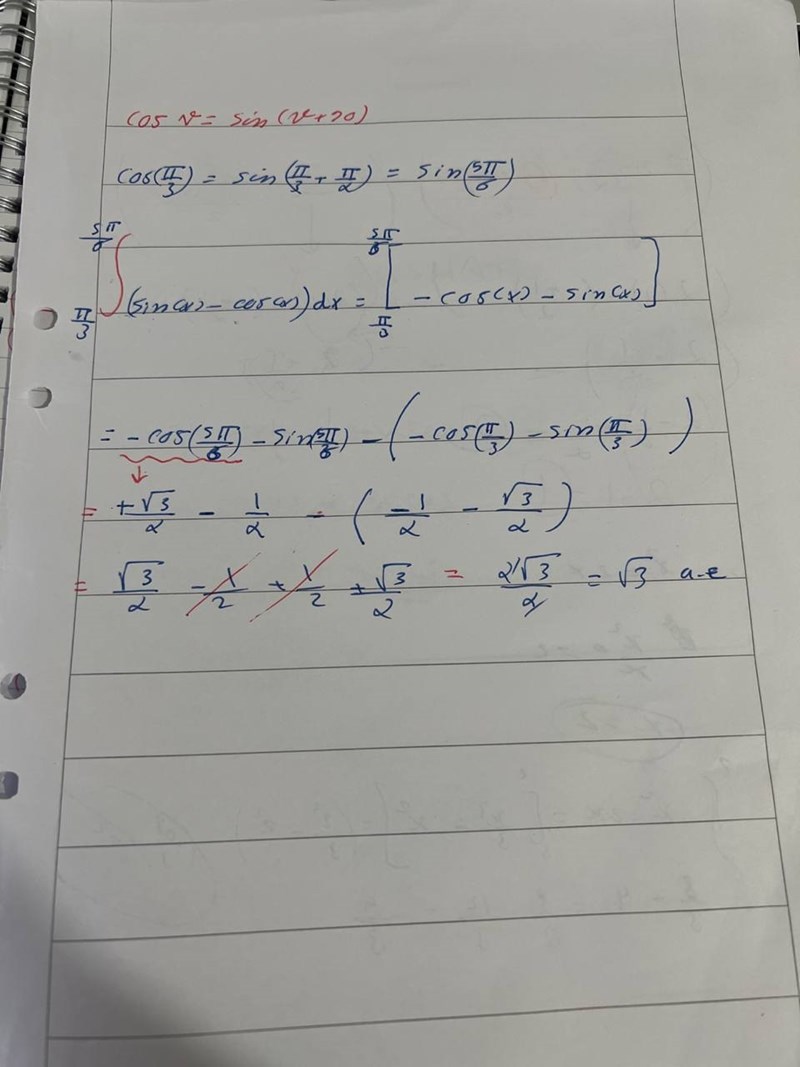 cos v = sin (v+90)
cos(π/3) = sin(π/3 + π/2) = sin(5π/6)
∫_{π/3}^{5π/6} (sin(x) - cos(x)) dx = [-cos(x) - sin(x)]_{π/3}^{5π/6}
= -cos(5π/6) - sin(5π/6) - (-cos(π/3) - sin(π/3))
= +√3/2 - 1/2 - (-1/2 - √3/2)
= √3/2 - 1/2 + 1/2 + √3/2 = 2√3/2 = √3 a.e